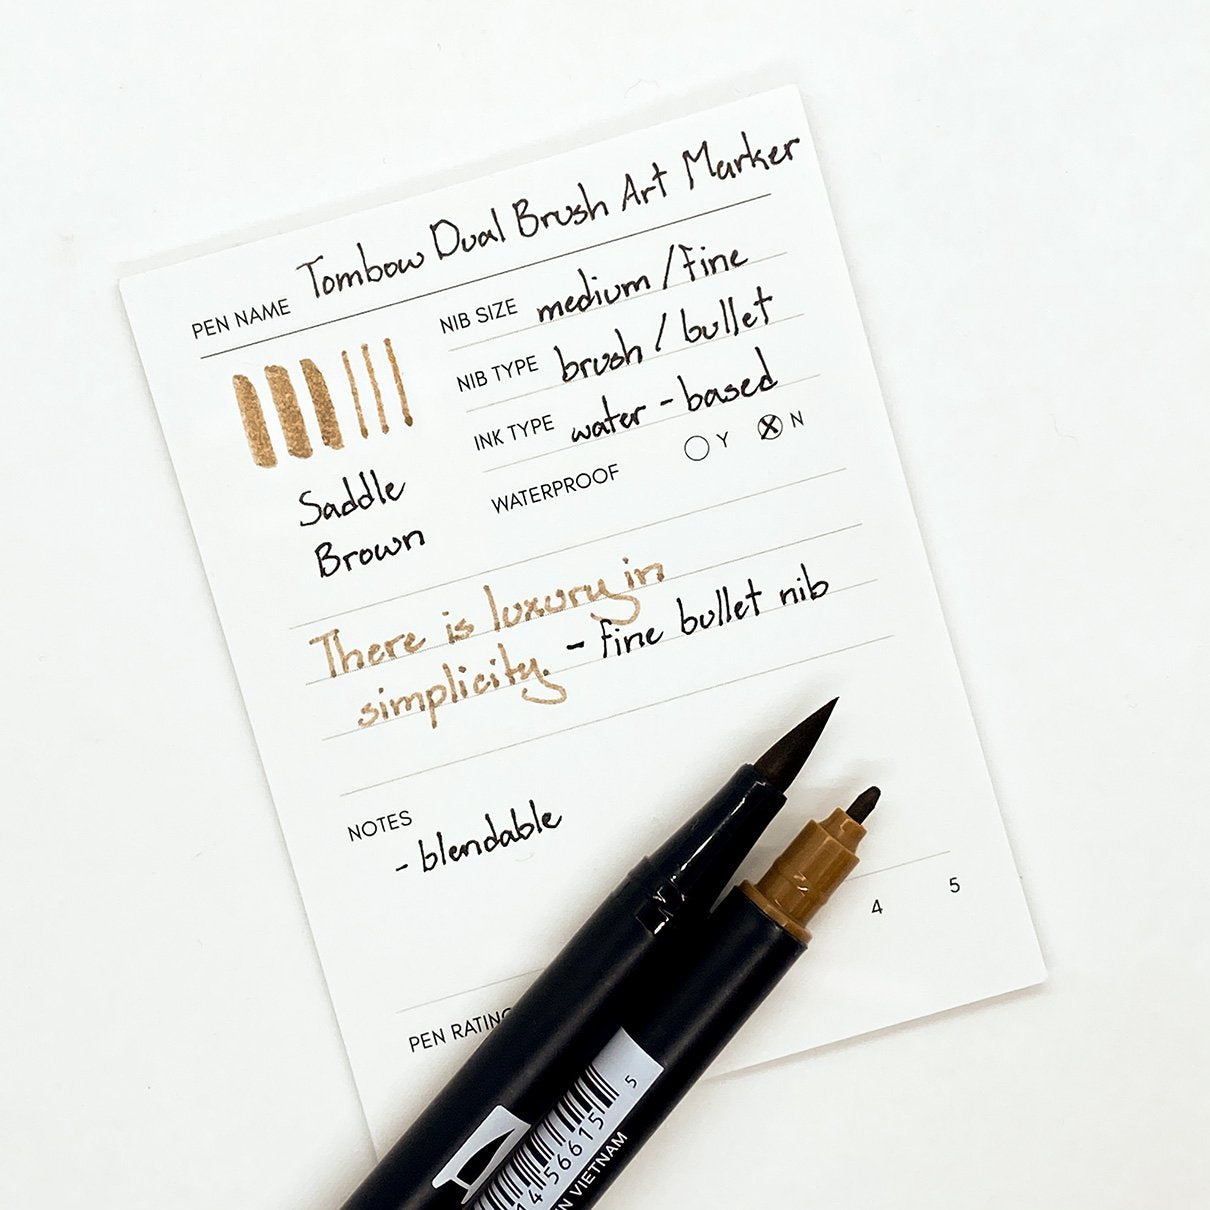 PEN NAME Tombow Dual Brush Art Marker
NIB SIZE medium/fine
NIB TYPE brush/bullet
INK TYPE water-based
WATERPROOF Y N
Saddle
Brown
There is luxury in
simplicity. - fine bullet nib
NOTES
- blendable
4 5
PEN RATING
5
14 56615
N VIETNAM